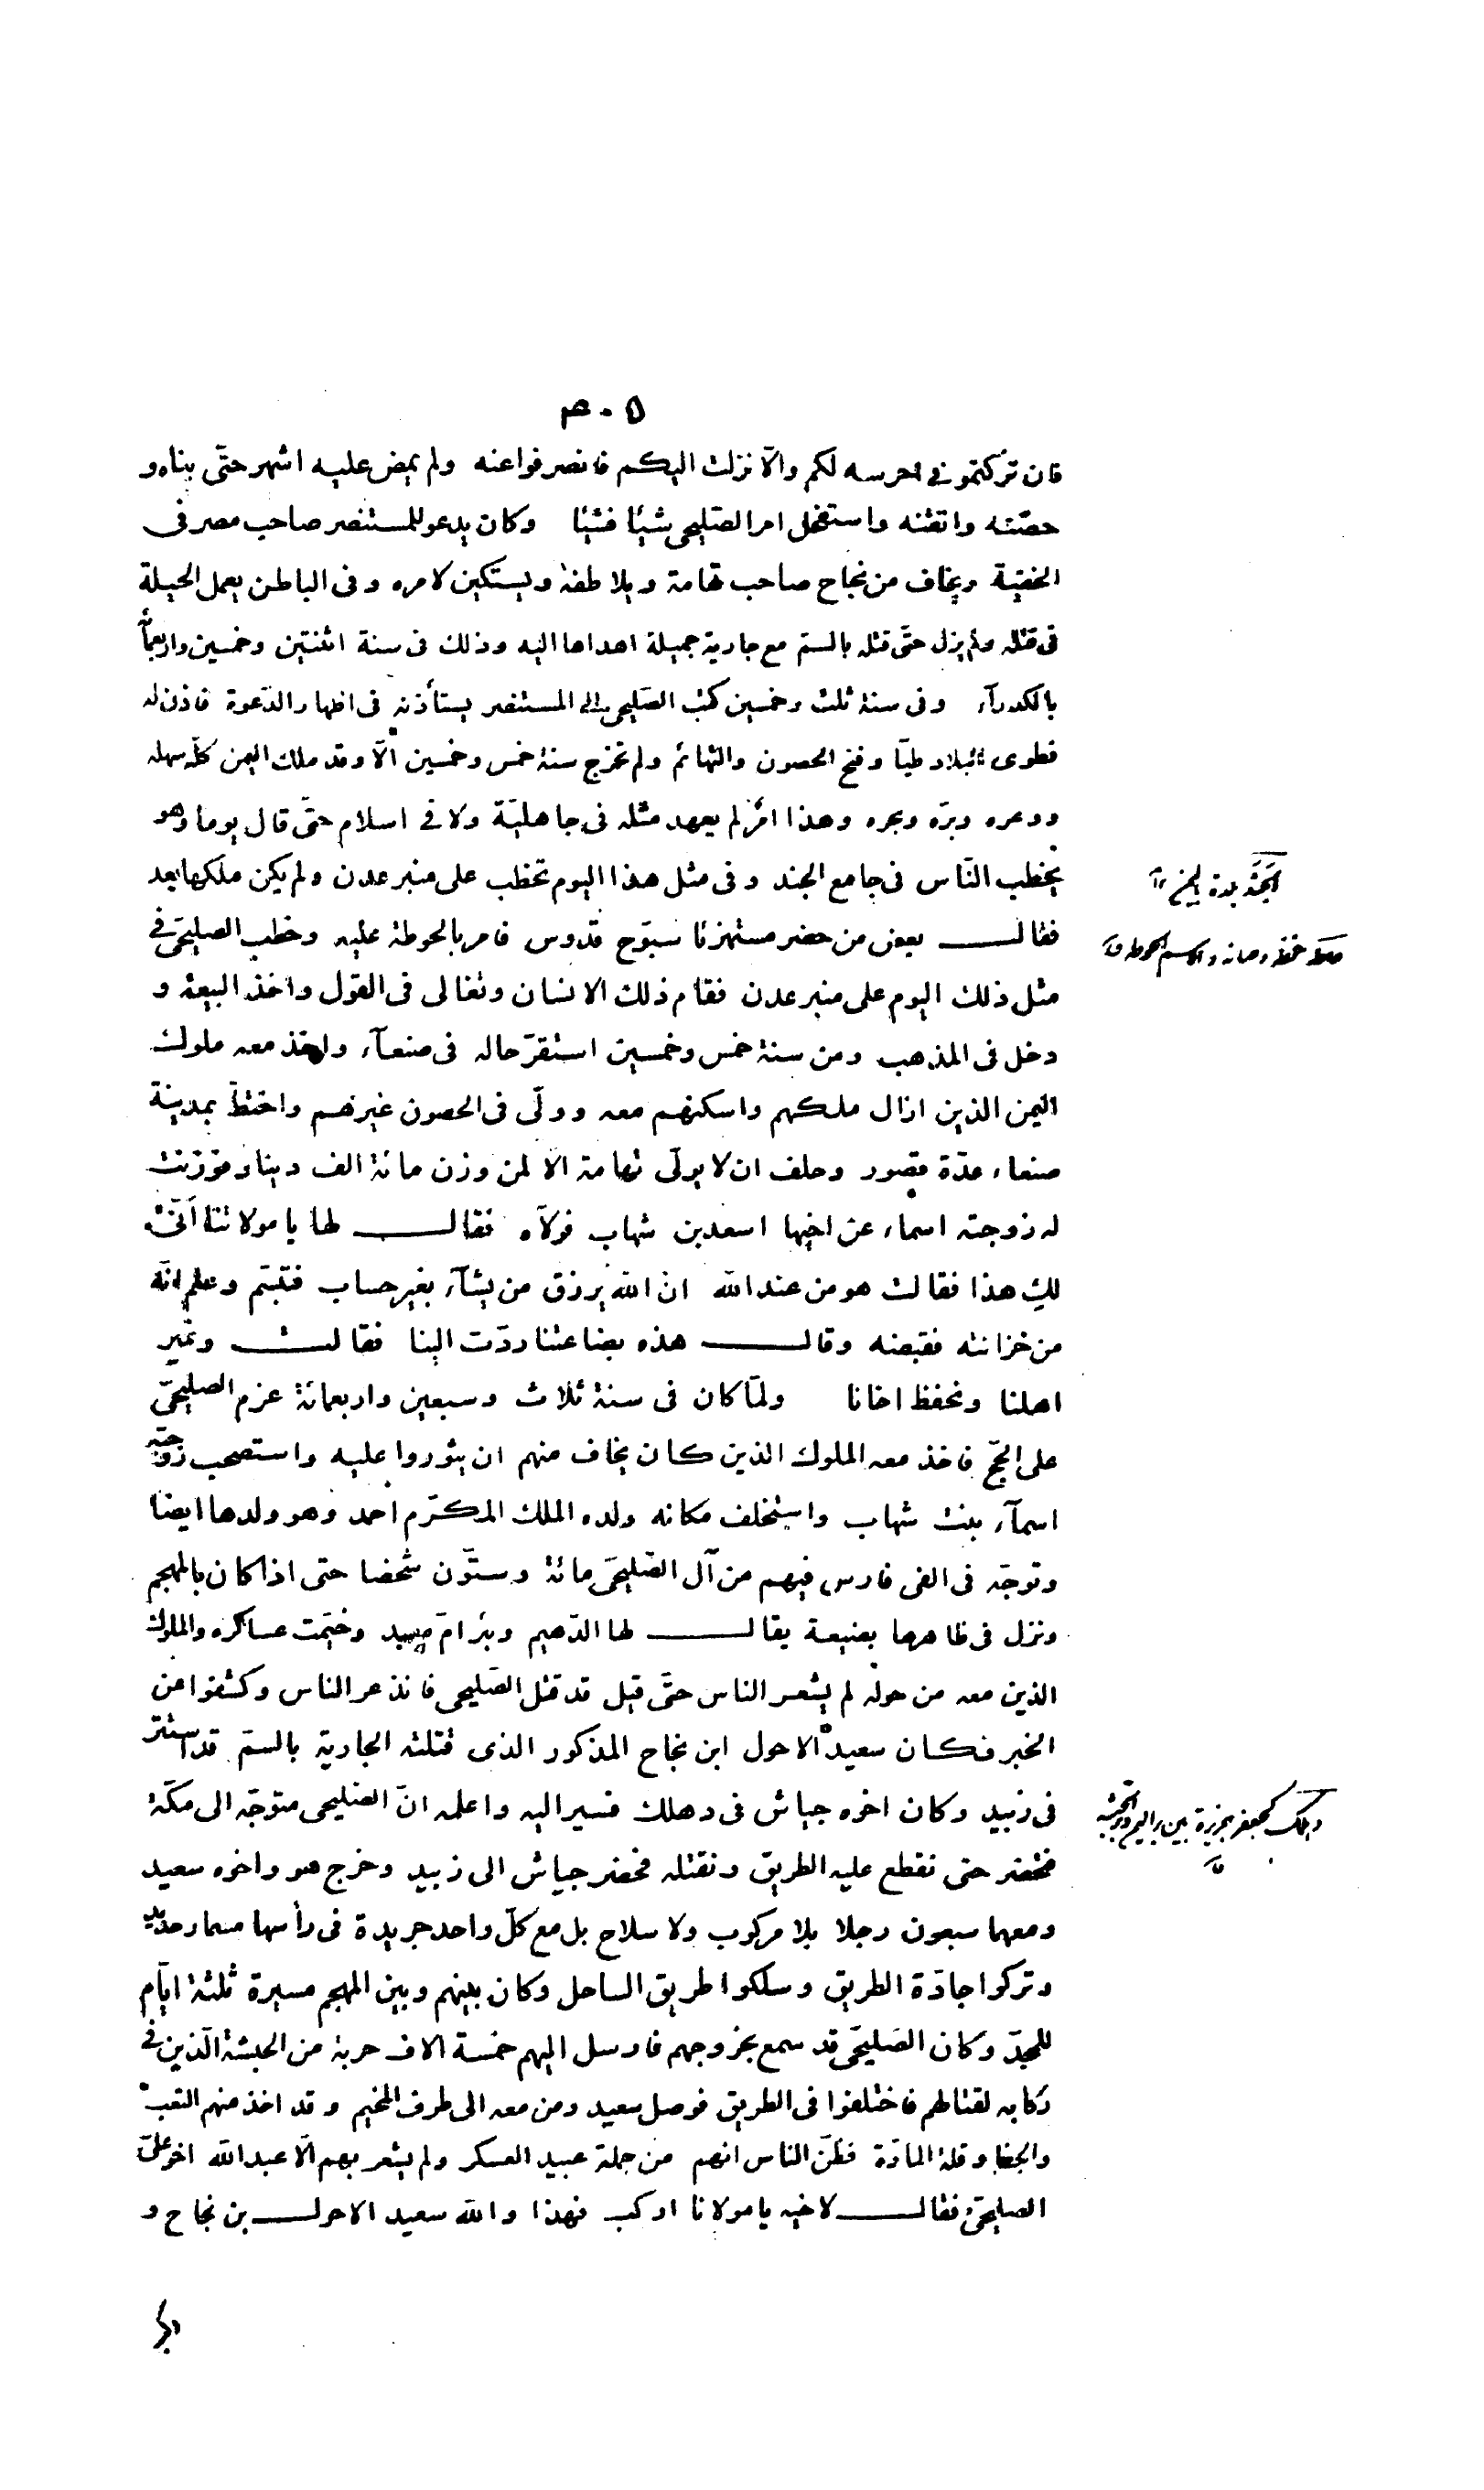 ٥٠٣
فان تركتمونى احرسه لكم والّا نزلت اليكم فانصرفوا عنه ولم يمض عليه اشهر حتّى بناه و
حصّنه واتقنه واستفحل امر الصّليحى شيئًا فشيئًا وكان يدعو للمستنصر صاحب مصر فى
الخفيّة ويخاف من نجاح صاحب تهامة ويلاطفه ويستكين لامره وفى الباطن يعمل الحيلة
فى قتله ولم يزل حتّى قتله بالسمّ مع جارية جميلة اهداها اليه وذلك فى سنة اثنتين وخمسين واربعمأئة
بالكدرآء وفى سنة ثلث وخمسين كتب الصّليحى الى المستنصر يستأذنه فى اظهار الدّعوة فاذن له
فطوى البلاد طيّا وفتح الحصون والتهائم ولم تخرج سنة خمس وخمسين الّا وقد ملك اليمن كلّه سهله
ووعره وبرّه وبحره وهذا امرٌ لم يعهد مثله فى جاهليّة ولا فى اسلام حتّى قال يوما وهو
يخطب النّاس فى جامع الجند وفى مثل هذا اليوم نخطب على منبر عدن ولم يكن ملكها بعد
الجند بلدة باليمن
فقال بعض من حضر مستهزئا سبّوح قدّوس فامر بالحوطة عليه وخطب الصليحىّ فى
حفظه وصانه والاسم الحوطه ق
مثل ذلك اليوم على منبر عدن فقام ذلك الانسان وتغالى فى القول واخذ البيعة و
دخل فى المذهب ومن سنة خمس وخمسين استقرّ حاله فى صنعآء واخذ معه ملوك
اليمن الذين ازال ملكهم واسكنهم معه وولّى فى الحصون غيرهم واختطّ بمدينة
صنعاء عدّة قصور وحلف ان لا يولّى تهامة الّا لمن وزن مائة الف دينار فوزنت
له زوجته اسماء عن اخيها اسعد بن شهاب فولّاه فقال لها يا مولاتنا أنّى
لكِ هذا فقالت هو من عند الله انّ الله يرزق من يشآء بغير حساب فتبسّم وعلم انّه
من خزانته فقبضه وقال هذه بضاعتنا ردّت الينا فقالت ونمير
اهلنا ونحفظ اخانا ولمّا كان فى سنة ثلاث وسبعين واربعمائة عزم الصليحىّ
على الحجّ فاخذ معه الملوك الذين كان يخاف منهم ان يثوروا عليه واستصحب زوجته
اسمآء بنت شهاب واستخلف مكانه ولده الملك المكرّم احمد وهو ولدها ايضا
وتوجّه فى الفى فارس فيهم من آل الصّليحىّ مائة وستّون شخصا حتى اذا كان بالمهجم
ونزل فى ظاهرها بضيعة يقال لها الدّهيم وبئر امّ معبد وخيّمت عساكره والملوك
الذين معه من حوله لم يشعر الناس حتّى قيل قد قتل الصّليحى فانذعر الناس وكشفوا عن
الخبر فكان سعيد الاحول ابن نجاح المذكور الذى قتلته الجارية بالسمّ قد استتر
فى زبيد وكان اخوه جياش فى دهلك فسير اليه واعلمه انّ الصّليحى متوجّه الى مكّة
دهلك كجعفر جزيرة بين بر اليمن وبر الحبشه ق
فتحضر حتى نقطع عليه الطريق ونقتله فحضر جياش الى زبيد وخرج هو واخوه سعيد
ومعهما سبعون رجلا بلا مركوب ولا سلاح بل مع كلّ واحد جريدة فى رأسها مسمار حديد
وتركوا جادّة الطريق وسلكوا طريق الساحل وكان بينهم وبين المهجم مسيرة ثلثة ايّام
للمجدّ وكان الصّليحىّ قد سمع بخروجهم فارسل اليهم خمسة الاف حربة من الحبشة الّذين فى
ركابه لقتالهم فاختلفوا فى الطريق فوصل سعيد ومن معه الى طرف المخيم وقد اخذ منهم التعب
والحفا وقلة المادّة فظنّ الناس انهم من جملة عبيد العسكر ولم يشعر بهم الّا عبد الله اخو علىّ
الصليحىّ فقال لاخيه يا مولانا اركب فهذا والله سعيد الاحول بن نجاح و